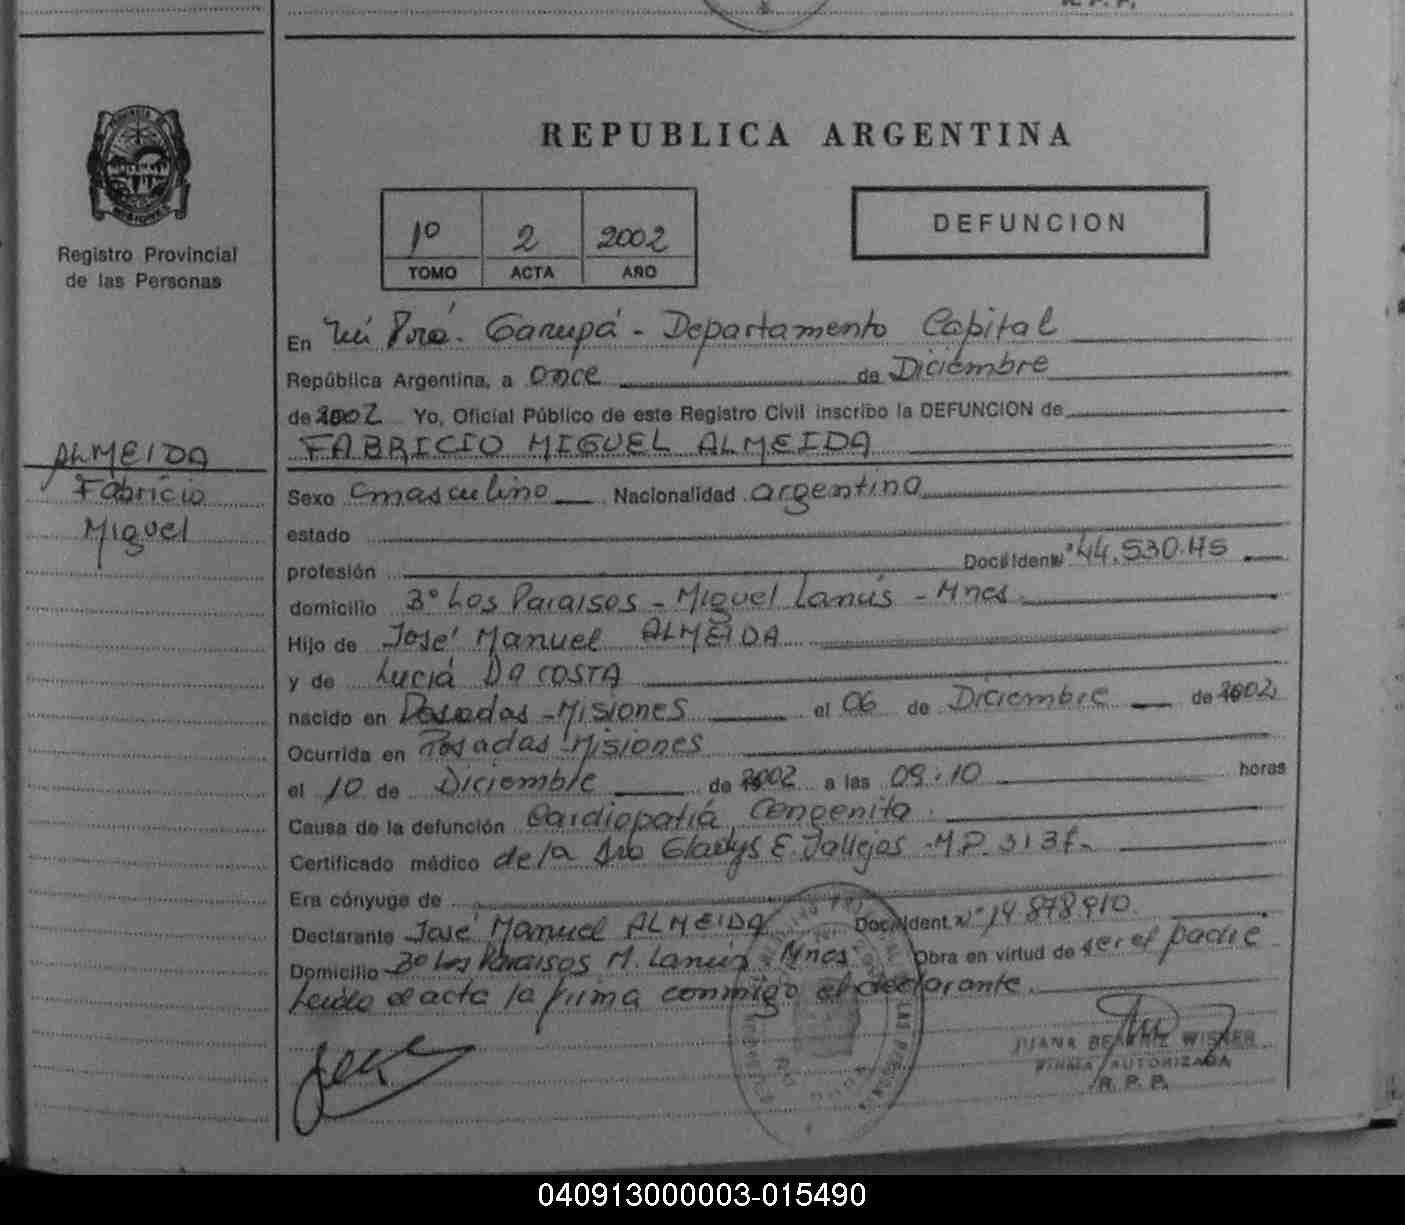 REPUBLICA ARGENTINA
Registro Provincial
de las Personas
1º 2 2002
TOMO ACTA AÑO
DEFUNCION
ALMEIDA
Fabricio
Miguel
En Garupá - Departamento Capital
República Argentina, a once de Diciembre
de 2002 Yo, Oficial Público de este Registro Civil inscribo la DEFUNCION de
FABRICIO MIGUEL ALMEIDA
Sexo masculino Nacionalidad argentina
estado
profesión Doc. Ident. Nº 44.530.115
domicilio Bº Los Paraisos - Miguel Lanús - Mnes
Hijo de José Manuel ALMEIDA
y de Luciá Da COSTA
nacido en Posadas - Misiones el 06 de Diciembre de 2002
Ocurrida en Posadas - Misiones
el 10 de Diciembre de 2002 a las 09:10 horas
Causa de la defunción Cardiopatiá Congenita.
Certificado médico de la Gladys E. Vallejos - M.P.
Era cónyuge de
Declarante José Manuel ALMEIDA Doc. Ident. Nº 14.878.910
Domicilio Bº Los Paraisos M. Lanús Mnes Obra en virtud de ser el padre
Leída el acta la firma conmigo el declarante.
JUANA BEATRIZ WISNER
FIRMA AUTORIZADA
R. P. P.
040913000003-015490